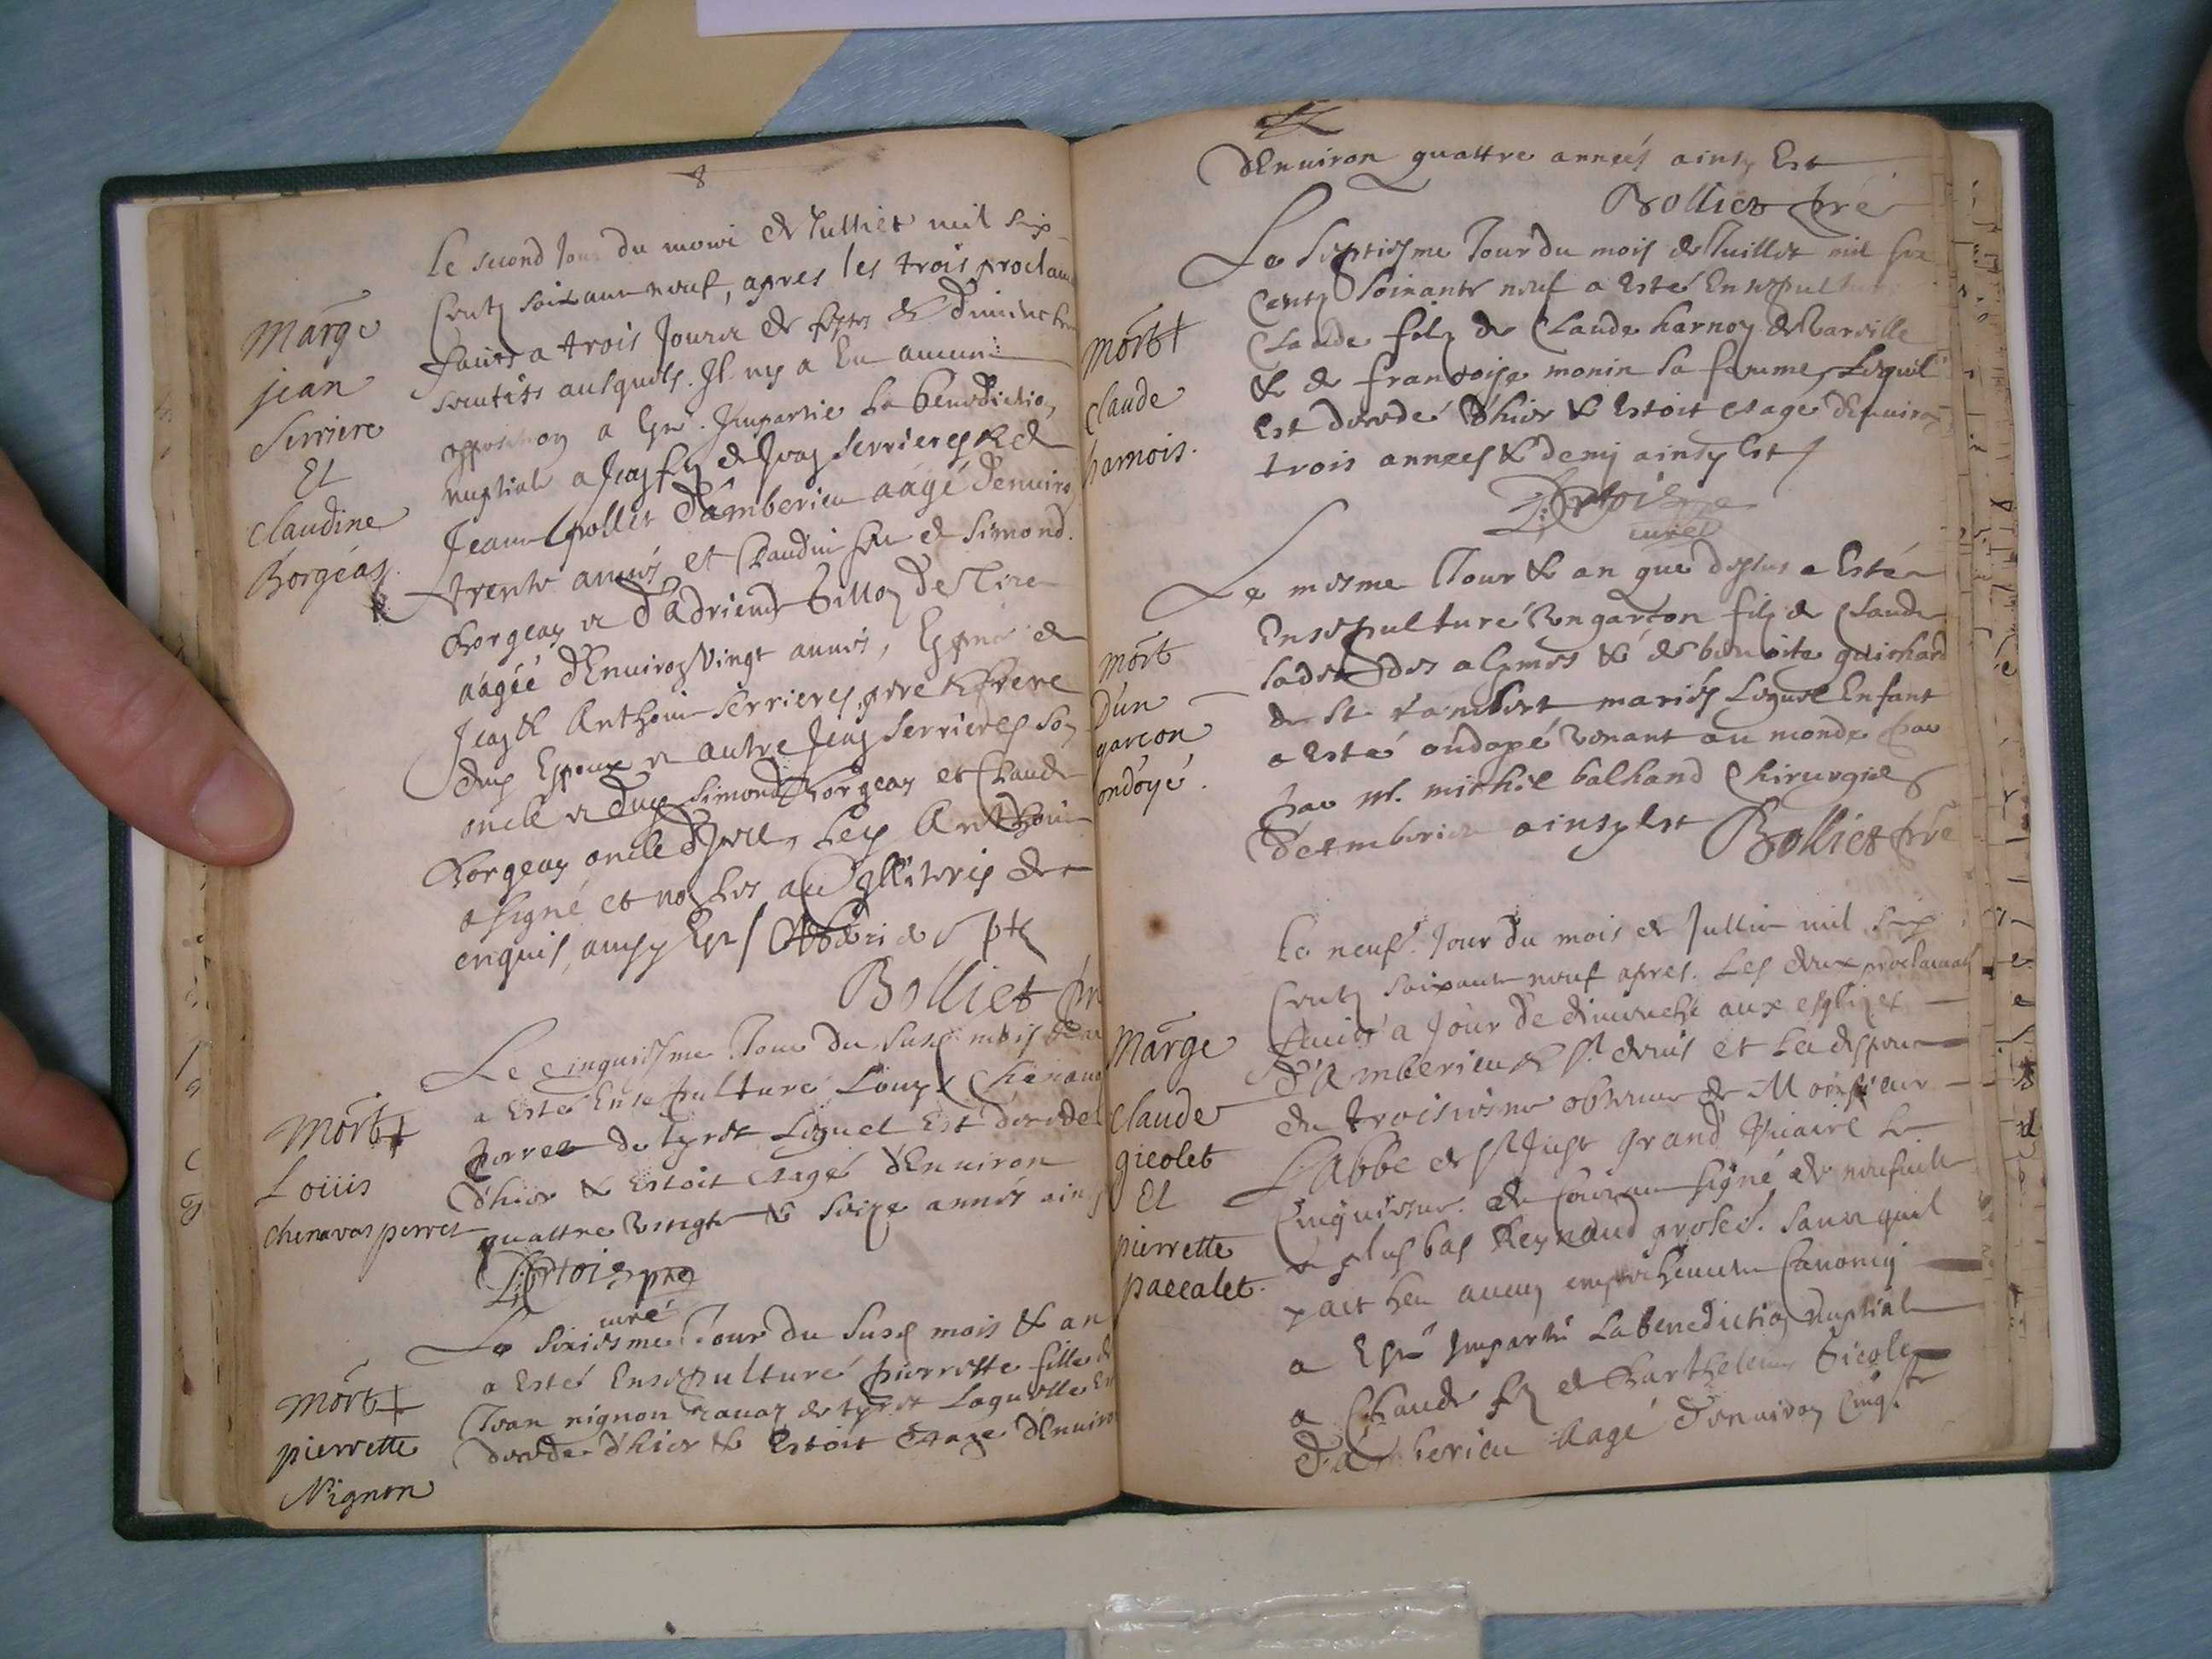 8
Marge
jean
Serriere
Et
Claudine
Borgéas
Le second Jour du mowi de Julliet mil six
Centz soixante neuf, apres les trois proclama
faittes a trois Jours de festes & diminches
auxquels. Il ny a eu aucune
opposition a Este Impartie la benediction
nuptiale a Jean filz de Jean Serrieres & de
Jeanne pollet d'amberieu aagé d'environ
trente années et Claudine fille de Simond
Borgeas & d'adrienne
aagée d'Environ Vingt années, En presence de
Jean & Anthoine Serrieres, pere & frere
dud Espoux & autre Jean Serrieres son
oncle & dud Simond Borgeas et Claude
Borgeas oncle d'Icelle, Led Anthoine
a signé et non les aultres Illiteris de
enquis, ainsy Est
Bolliet pre
Mort
Loüis
Chenavas perret
Le cinquiesme Jour du susd mois & an
a Esté Ensepulturé Louys Chenavas
perret de tyret Lequel Est decedé
d'hier & Estoit eagé d'Environ
quattre vingts & seize années ainsy
curé
Mort
pierrette
Nignon
Le sixiesme Jour du susd mois & an
a Esté Ensepulturé pierrette fille de
Jean nignon ravaz de tyret Laquelle Est
decedée d'hier & Estoit eagée d'Environ
d'Environ quattre années ainsy Est
Bolliet pré
Mort
Claude
harnois.
Le Septiesme Jour du mois de Juillet mil six
Centz Soixante neuf a Esté Ensepulturé
Claude filz de Claude harnoy de Vareille
& de francoise monin sa femme, Lequel
Est decedé d'hier & Estoit eagé d'environ
trois annees & demy ainsy Est
curé
mort
d'un
garcon
ondoyé.
Le mesme Jour & an que dessus a Esté
Ensepulturé Un garcon filz de Claude
& de benoite guichard
de St rambert mariés Lequel Enfant
a Esté ondoyé Venant au monde par
par M. michel balland Chirurgien
d'amberieu ainsy Est Bolliet pré
Marge
Claude
gicolet
Et
pierrette
paccalet.
Le neuf. Jour du mois de Jullie mil six
Centz soixante neuf apres. Les deux proclamaõs
faites a Jour de dimenche aux esglizes
d'Amberieu & St denis et La dispence
du troisiesme obtenue de Monsieur
L'abbe de St Just Grand Vicaire le
Cinquiesme du Courant signé de neufville
& plus bas Reynaud. Sans quil
y ait heu aucun empechement Canonicq
a Esté Imparti La benediction nuptiale
a Claude filz de Barthelemy Gicolet
d'amberieu aagé d'environ Cinqte